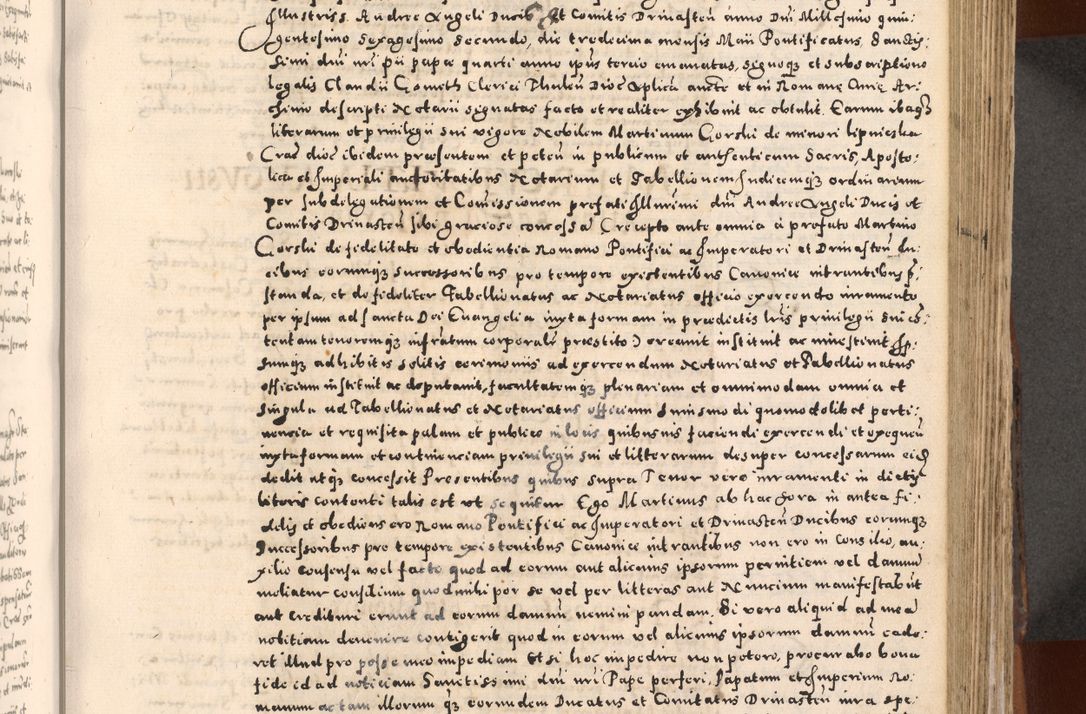 Illustriss. Andree Angeli Ducis et Comitis Drinasteñ anno Dni Millesimo quin:
gentesimo sexagesimo secundo, die tredecima mensis Maii Pontificatus Sanctis:
simi dni nri pii papæ quarti anno ipsius tercio emanatas, signoq3 et subscriptione
legalis Claudii Cometh Clerici Thuleñ Dioc Aplica aucte et in Romane Curie Ar:
chivio descripti Notarii signatas facto et realiter exhibuit ac obtulit. Earum itaq3
literarum et privilegii sui vigore Nobilem Martinum Gorski de minori lipnieska
Crac dioc ibidem præsentem et peteñ in publicum et authenticum Sacris, Aposto:
lica et Imperiali auctoritatibus Notarium et Tabellionem Judicemq3 ordinarium
per subdelegationem et Comissionem prefati Illurimi dni Andree Angeli Ducis et
Comitis Drinasteñ sibi graciose concessa (recepto ante omnia à prefato Martino
Gorski de fidelitate et obedientia Romano Pontifici ac Imperatori et Drinasteñ Du:
cibus eorumq3 successoribus pro tempore existentibus Canonice intrantibus p:
standa, et de fideliter Tabellionatus ac Notariatus officio exercendo iuramento
per ipsum ad sancta Dei Euangelia iuxta formam in prædictis lris privilegii sui cõ:
tentam tenoremq3 infratum corporalr præstito) creavit instituit ac investivit
sumq3 adhibitis solitis cerimoniis ad exercendum Notariatus et Tabellionatus
officium instituit ac deputavit, facultatemq3 plenariam et omnimodam omnia et
singula ad Tabellionatus et Notariatus officium huiusmodi quomodolibet perti:
nencia et requisita palam et publice in locis quibusvis faciendi exercendi et exequeñ
iuxta formam et continenciam privilegii sui et litterarum desuper concessarum eid
dedit atq3 concessit Presentibus quibus supra Tenor vero iuramenti in dictis
literis contenti talis est ut sequitur Ego Martinus ab hac hora in antea fi:
delis et obediens ero Romano Pontifici ac Imperatori et Drinasteñ Ducibus eorumq3
Successoribus pro tempore existentibus Canonice intrantibus non ero in Consilio, au:
xilio consensu vel facto quod ad eorum aut alicuius ipsorum pernitiem vel damnu
moliatur consilium quod mihi per se vel per litteras aut Nuncium manifestabut
aut credituri erunt ad eorum damnu nemini pandam. Si vero aliquid ad mea
notitiam devenire contigerit quod in eorum vel alicuius ipsorum damnu cede:
ret illud pro posse meo impediam Et si hoc impedire non potero, procurabo bona
fide id ad noticiam Sanctissimi dni nri Pape perferi, Papatum et Imperium Ro:
manum ac tam illorum q3 eorumdem Ducatus et Comitatus Drinasteñ iura spe: